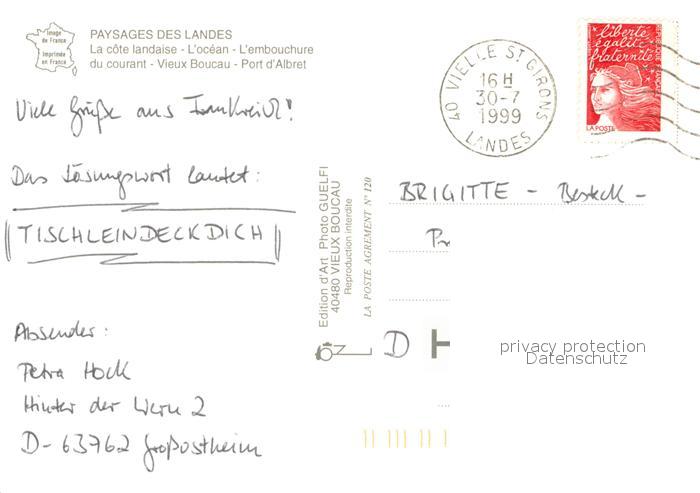 Image
de France
Imprimée
en France
PAYSAGES DES LANDES
La côte landaise - L'océan - L'embouchure
du courant - Vieux Boucau - Port d'Albret
40 VIELLE ST GIRONS
16 H
30-7
1999
LANDES
liberté
égalité
fraternité
RÉPUBLIQUE FRANÇAISE
LA POSTE
Viele Grüße aus Frankreich!
Das Lösungswort lautet:
TISCHLEINDECKDICH
Absender:
Petra Hock
Hinter der
D-63762 Großostheim
Edition d'Art Photo GUELFI
40480 VIEUX BOUCAU
Reproduction interdite
LA POSTE AGREMENT N° 120
BRIGITTE - Besteck -
D
privacy protection
Datenschutz